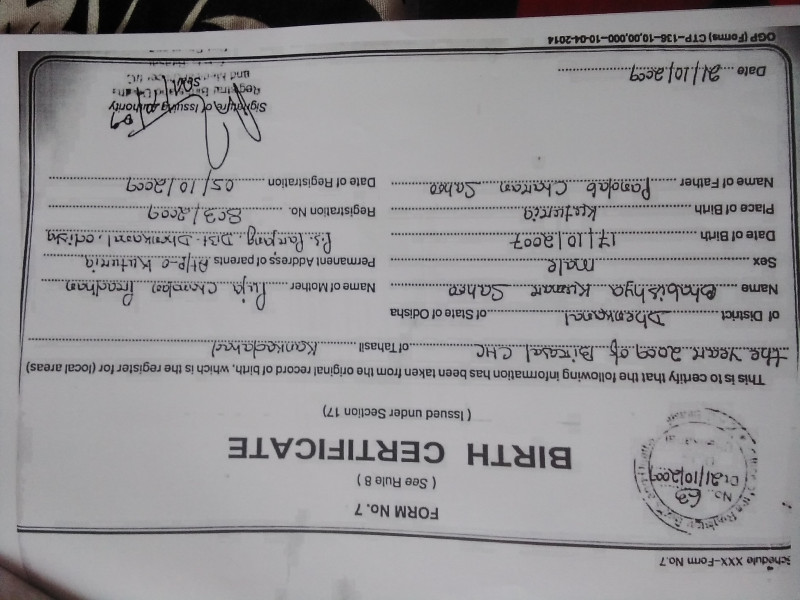 Schedule XXX-Form No.7
FORM No. 7
( See Rule 8 )
BIRTH CERTIFICATE
( Issued under Section 17)
No. 63
Dt. 21/10/2009
This is to certify that the following information has been taken from the original record of birth, which is the register for (local areas)
the year 2009 of Birasal CHC of Tahasil Kankadahad
of District Dhenkanal of State of Odisha
Name Bhabishya Kumar Sahoo Name of Mother Puja Pradhan
Sex male Permanent Address of parents At/P-O Kuturia
Date of Birth 17/10/2007 Ps. Parjang, Dist- Dhenkanal, odisha
Place of Birth Kuturia Registration No. 803/2009
Name of Father Pandab Charan Sahoo Date of Registration 05/10/2009
Signature of Issuing authority
Date 21/10/2009
OGP (Forms) CTP-136-10,00,000-10-04-2014